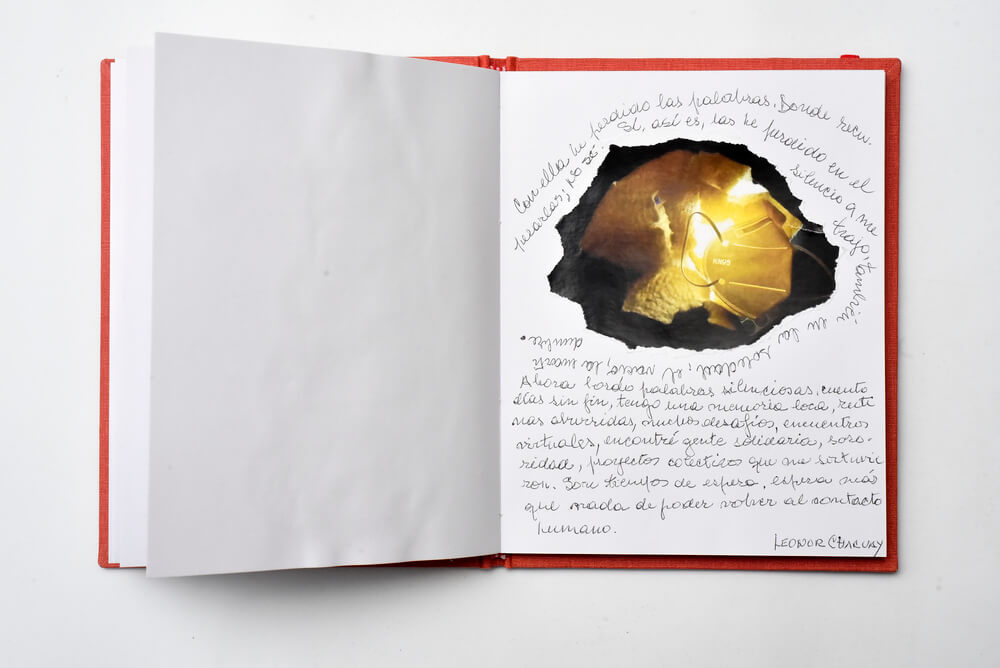 Con ella he perdido las palabras. Donde recu-
perarlas; no sé. Sí, así es, las he perdido en el
silencio q me
trajo, también en la soledad; el vacío, la incerti
dumbre.
KN95
Ahora bordo palabras silenciosas, cuento
días sin fin, tengo una memoria loca, ruti
nas aburridas, muchos desafíos, encuentros
virtuales, encontré gente solidaria, soro-
ridad, proyectos colectivos que me sostuvie
ron. Son tiempos de espera, espera más
que nada de poder volver al contacto
humano.
LEONOR